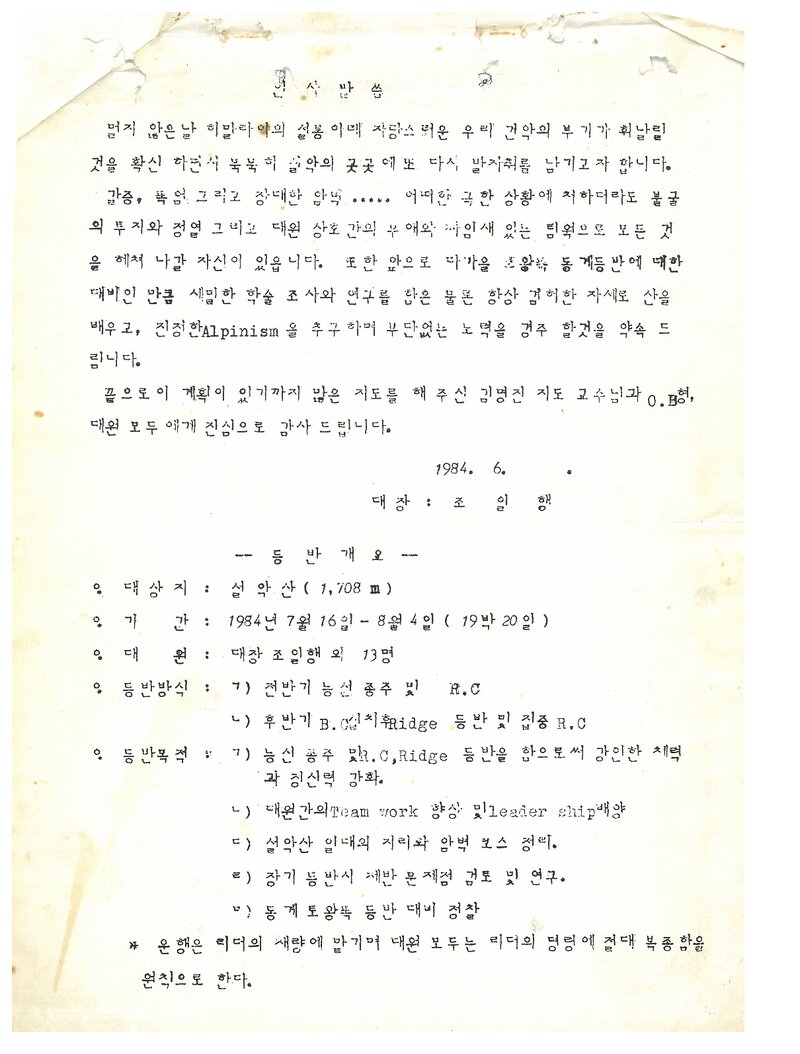 인 사 말 씀
멀지 않은날 히말라야의 설봉 아래 자랑스러운 우리 건악의 부기가 휘날릴
것을 확신 하면서 묵묵히 설악의 곳곳에 또 다시 발자취를 남기고자 합니다.
갈증, 폭염 그리고 장대한 암벽 ..... 어떠한 극한 상황에 처하더라도 불굴
의 투지와 정열 그리고 대원 상호간의 우애와 짜임새 있는 팀웍으로 모든 것
을 헤쳐 나갈 자신이 있읍니다. 또한 앞으로 다가올 토왕폭 동계등반에 대한
대비인 만큼 세밀한 학술 조사와 연구를 함은 물론 항상 겸허한 자세로 산을
배우고, 진정한Alpinism 을 추구하며 부단없는 노력을 경주 할것을 약속 드
립니다.
끝으로이 계획이 있기까지 많은 지도를 해 주신 김명진 지도 교수님과 O.B형,
대원 모두 에게 진심으로 감사 드립니다.
1984. 6. .
대장 : 조 일 행
-- 등 반 개 요 --
o. 대상지 : 설악산 ( 1,708 m )
o. 기 간 : 1984년 7월 16일 - 8월 4일 ( 19박 20일 )
o. 대 원 : 대장 조일행 외 13명
o. 등반방식 : ㄱ) 전반기 능선 종주 및 R.C
ㄴ) 후반기 B.C설치후Ridge 등반 및 집중 R.C
o. 등반목적 : ㄱ) 능선 종주 및R.C,Ridge 등반을 함으로써 강인한 체력
과 정신력 강화.
ㄴ) 대원간의Team work 향상 및leader ship배양
ㄷ) 설악산 일대의 지리와 암벽 코스 정리.
ㄹ) 장기 등반시 제반 문제점 검토 및 연구.
ㅁ) 동계 토왕폭 등반 대비 정찰
* 운행은 리더의 재량에 맡기며 대원 모두는 리더의 명령에 절대 복종함을
원칙으로 한다.